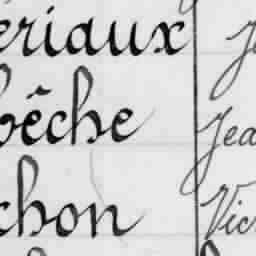 eriaux J
bêche Jea
chon Vic